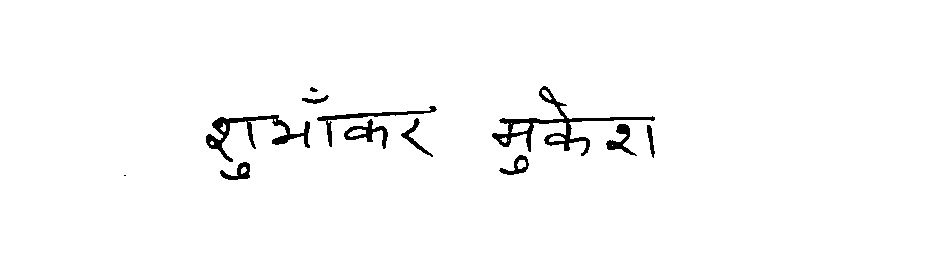 शुभाँकर मुकेश